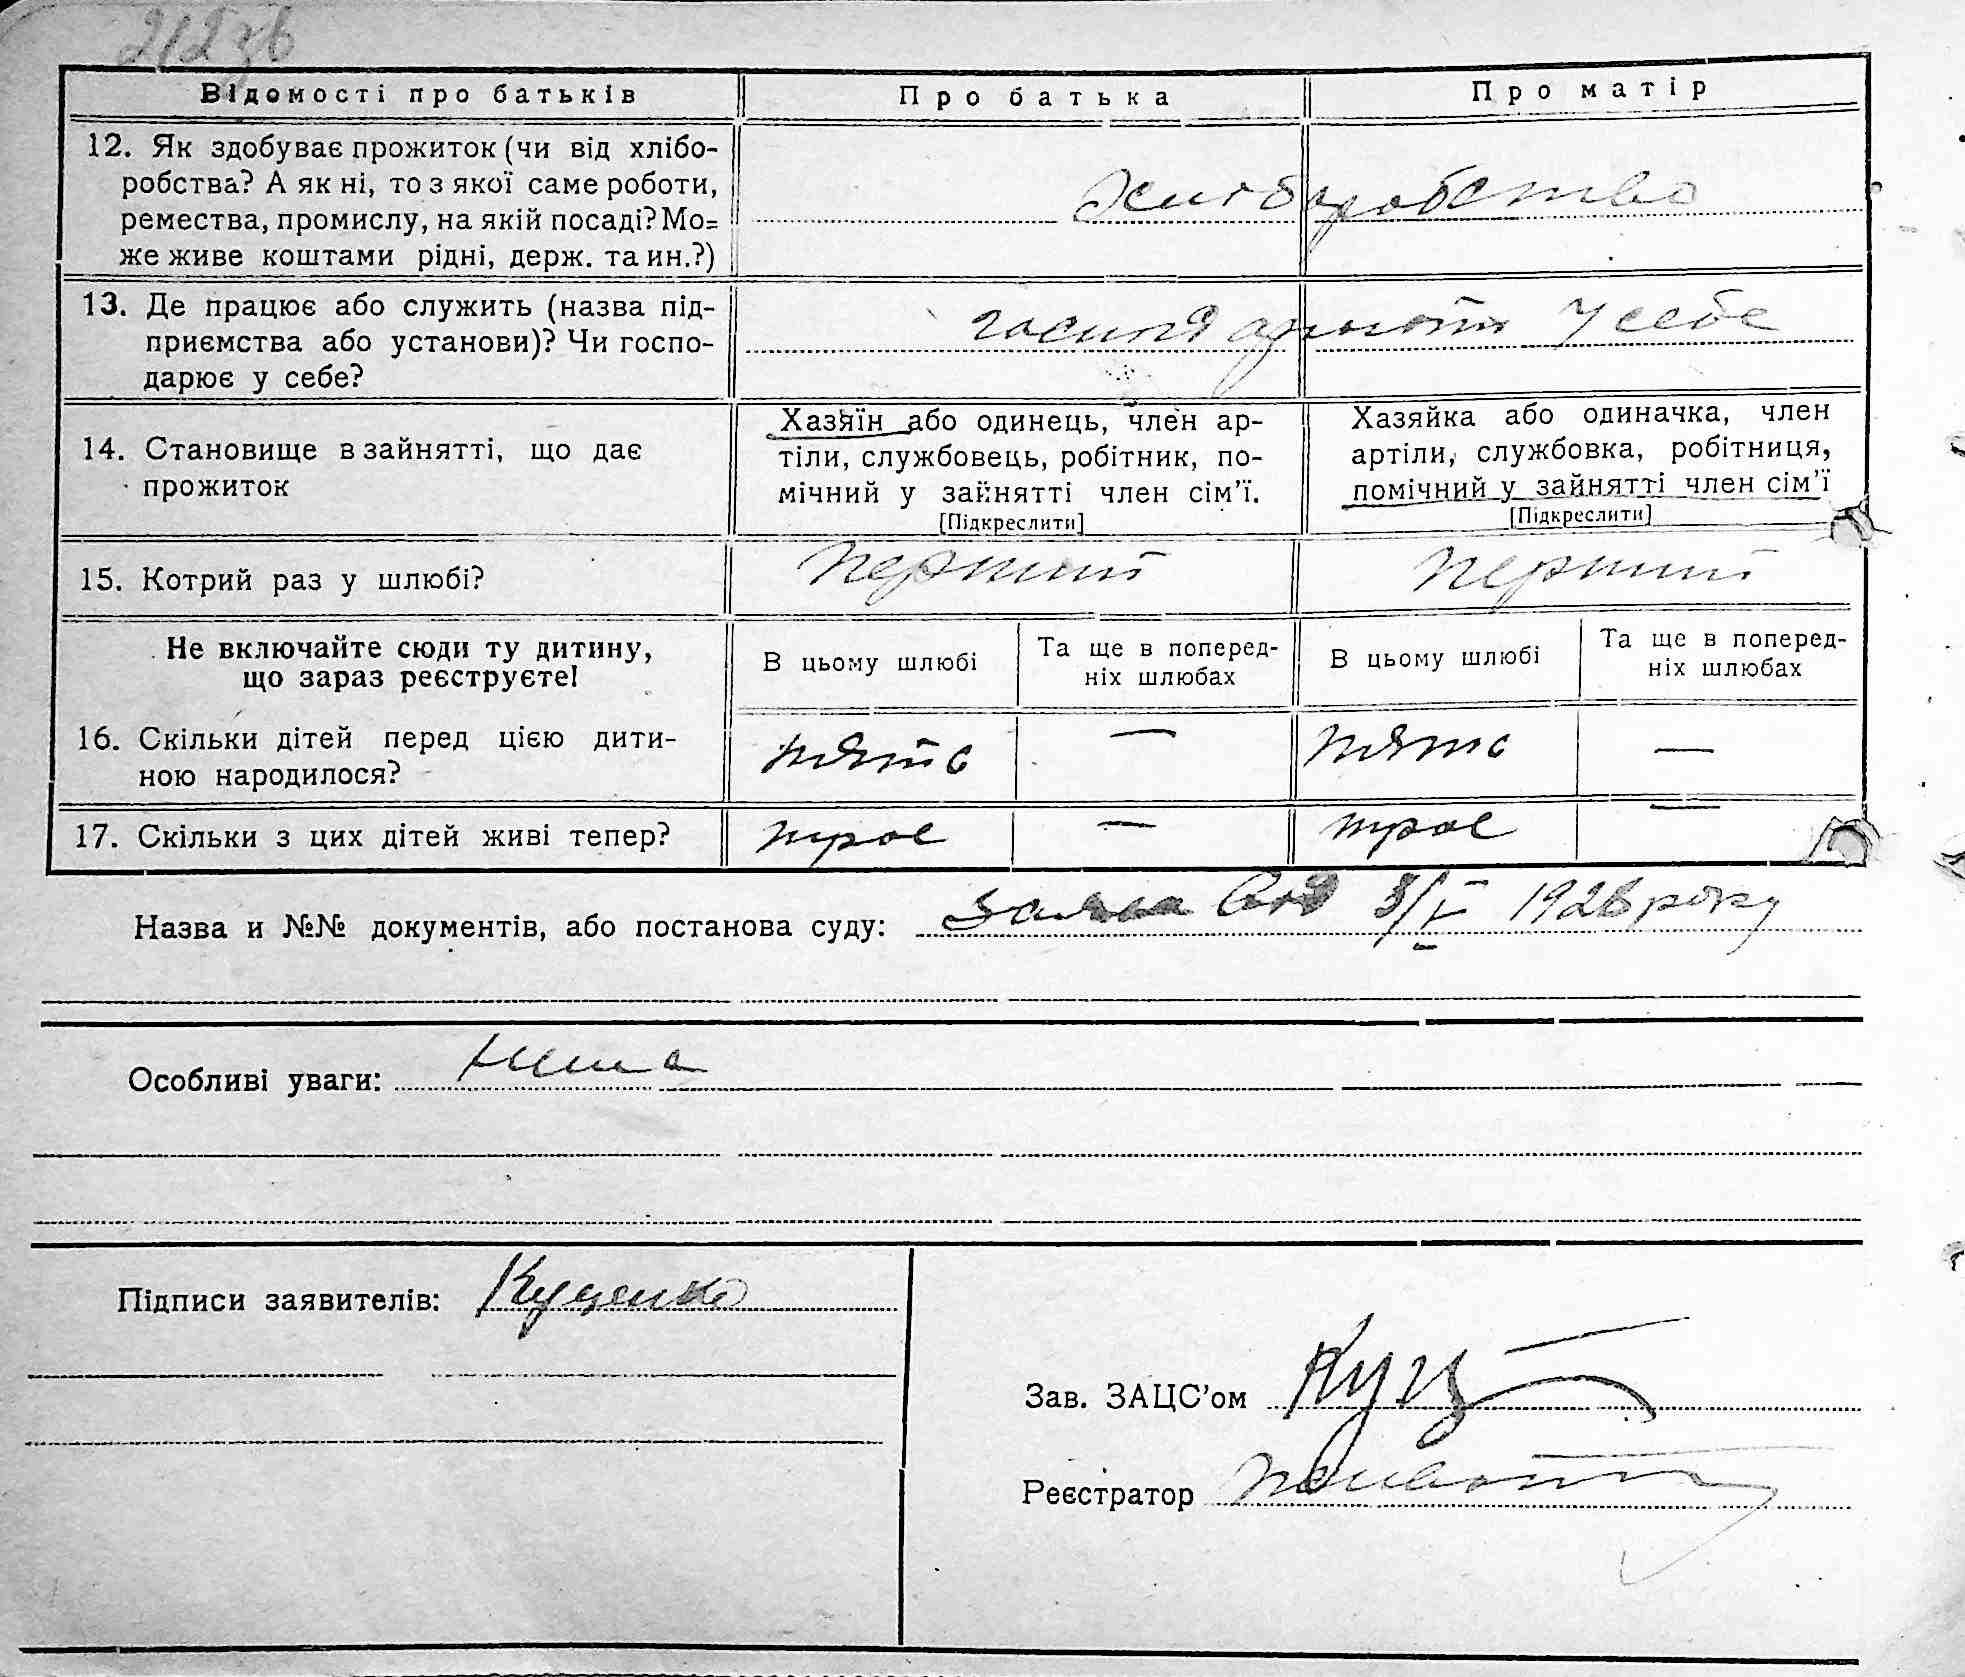 212 зв
Відомості про батьків Про батька Про матір
12. Як здобуває прожиток (чи від хлібо-
робства? А як ні, то з якої саме роботи,
ремества, промислу, на якій посаді? Мо=
же живе коштами рідні, держ. та ин.?)
хліборобство
13. Де працює або служить (назва під-
приємства або установи)? Чи госпо-
дарює у себе?
у себе
14. Становище в зайнятті, що дає
прожиток
Хазяїн або одинець, член ар-
тіли, службовець, робітник, по-
мічний у зайнятті член сім'ї.
[Підкреслити]
Хазяйка або одиначка, член
артіли, службовка, робітниця,
помічний у зайнятті член сім'ї
[Підкреслити]
15. Котрий раз у шлюбі? перший перший
Не включайте сюди ту дитину,
що зараз реєструєте!
В цьому шлюбі
Та ще в поперед-
ніх шлюбах
В цьому шлюбі
Та ще в поперед-
ніх шлюбах
16. Скільки дітей перед цією дити-
ною народилося?
пять — пять —
17. Скільки з цих дітей живі тепер? трое — трое —
Назва и №№ документів, або постанова суду: заява від 8/V 1928 року
Особливі уваги:
Підписи заявителів: Куценко
Зав. ЗАЦС'ом Куц
Реєстратор